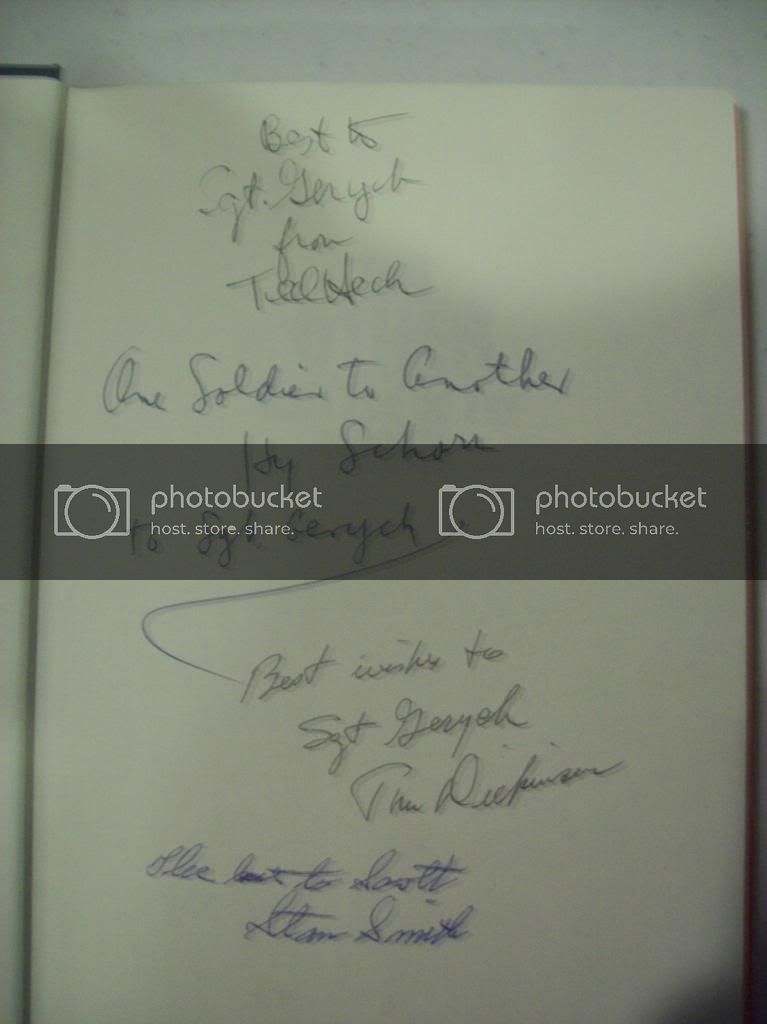 Best to
Sgt. Gerych
from
Ted Hech
One Soldier to Another
Hy Schorr
photobucket photobucket
host. store. share. host. store. share.
To Sgt. Gerych.
Best wishes to
Sgt Gerych
Tim Dickinson
The best to Scott
Stan Smith